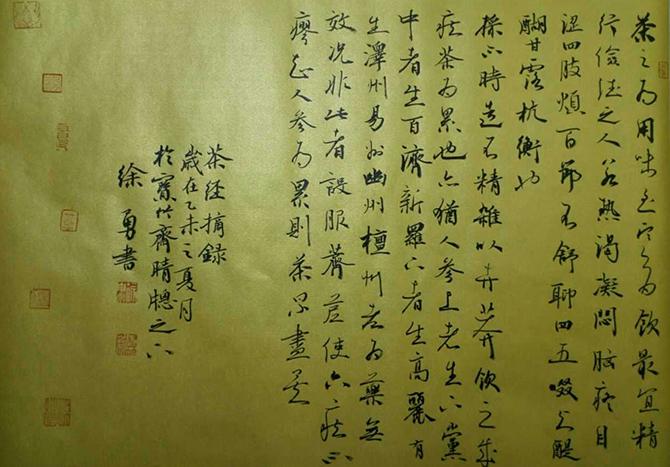 茶之为用味至寒为飲最宜精
行儉德之人若熱渴凝悶腦疼目
澀四肢煩百節不舒聊四五啜与醍
醐甘露杭衡也
採不時造不精雜以卉莽飲之成
疾茶为累也亦猶人參上者生上黨
中者生百濟新羅下者生高麗有
生澤州易州幽州檀州者为藥無
效況非此者設服薺苨使六疾不
瘳知人參为累則茶累盡矣
茶经摘録
歲在乙未之夏月
於寶齋晴牕之下
徐勇書